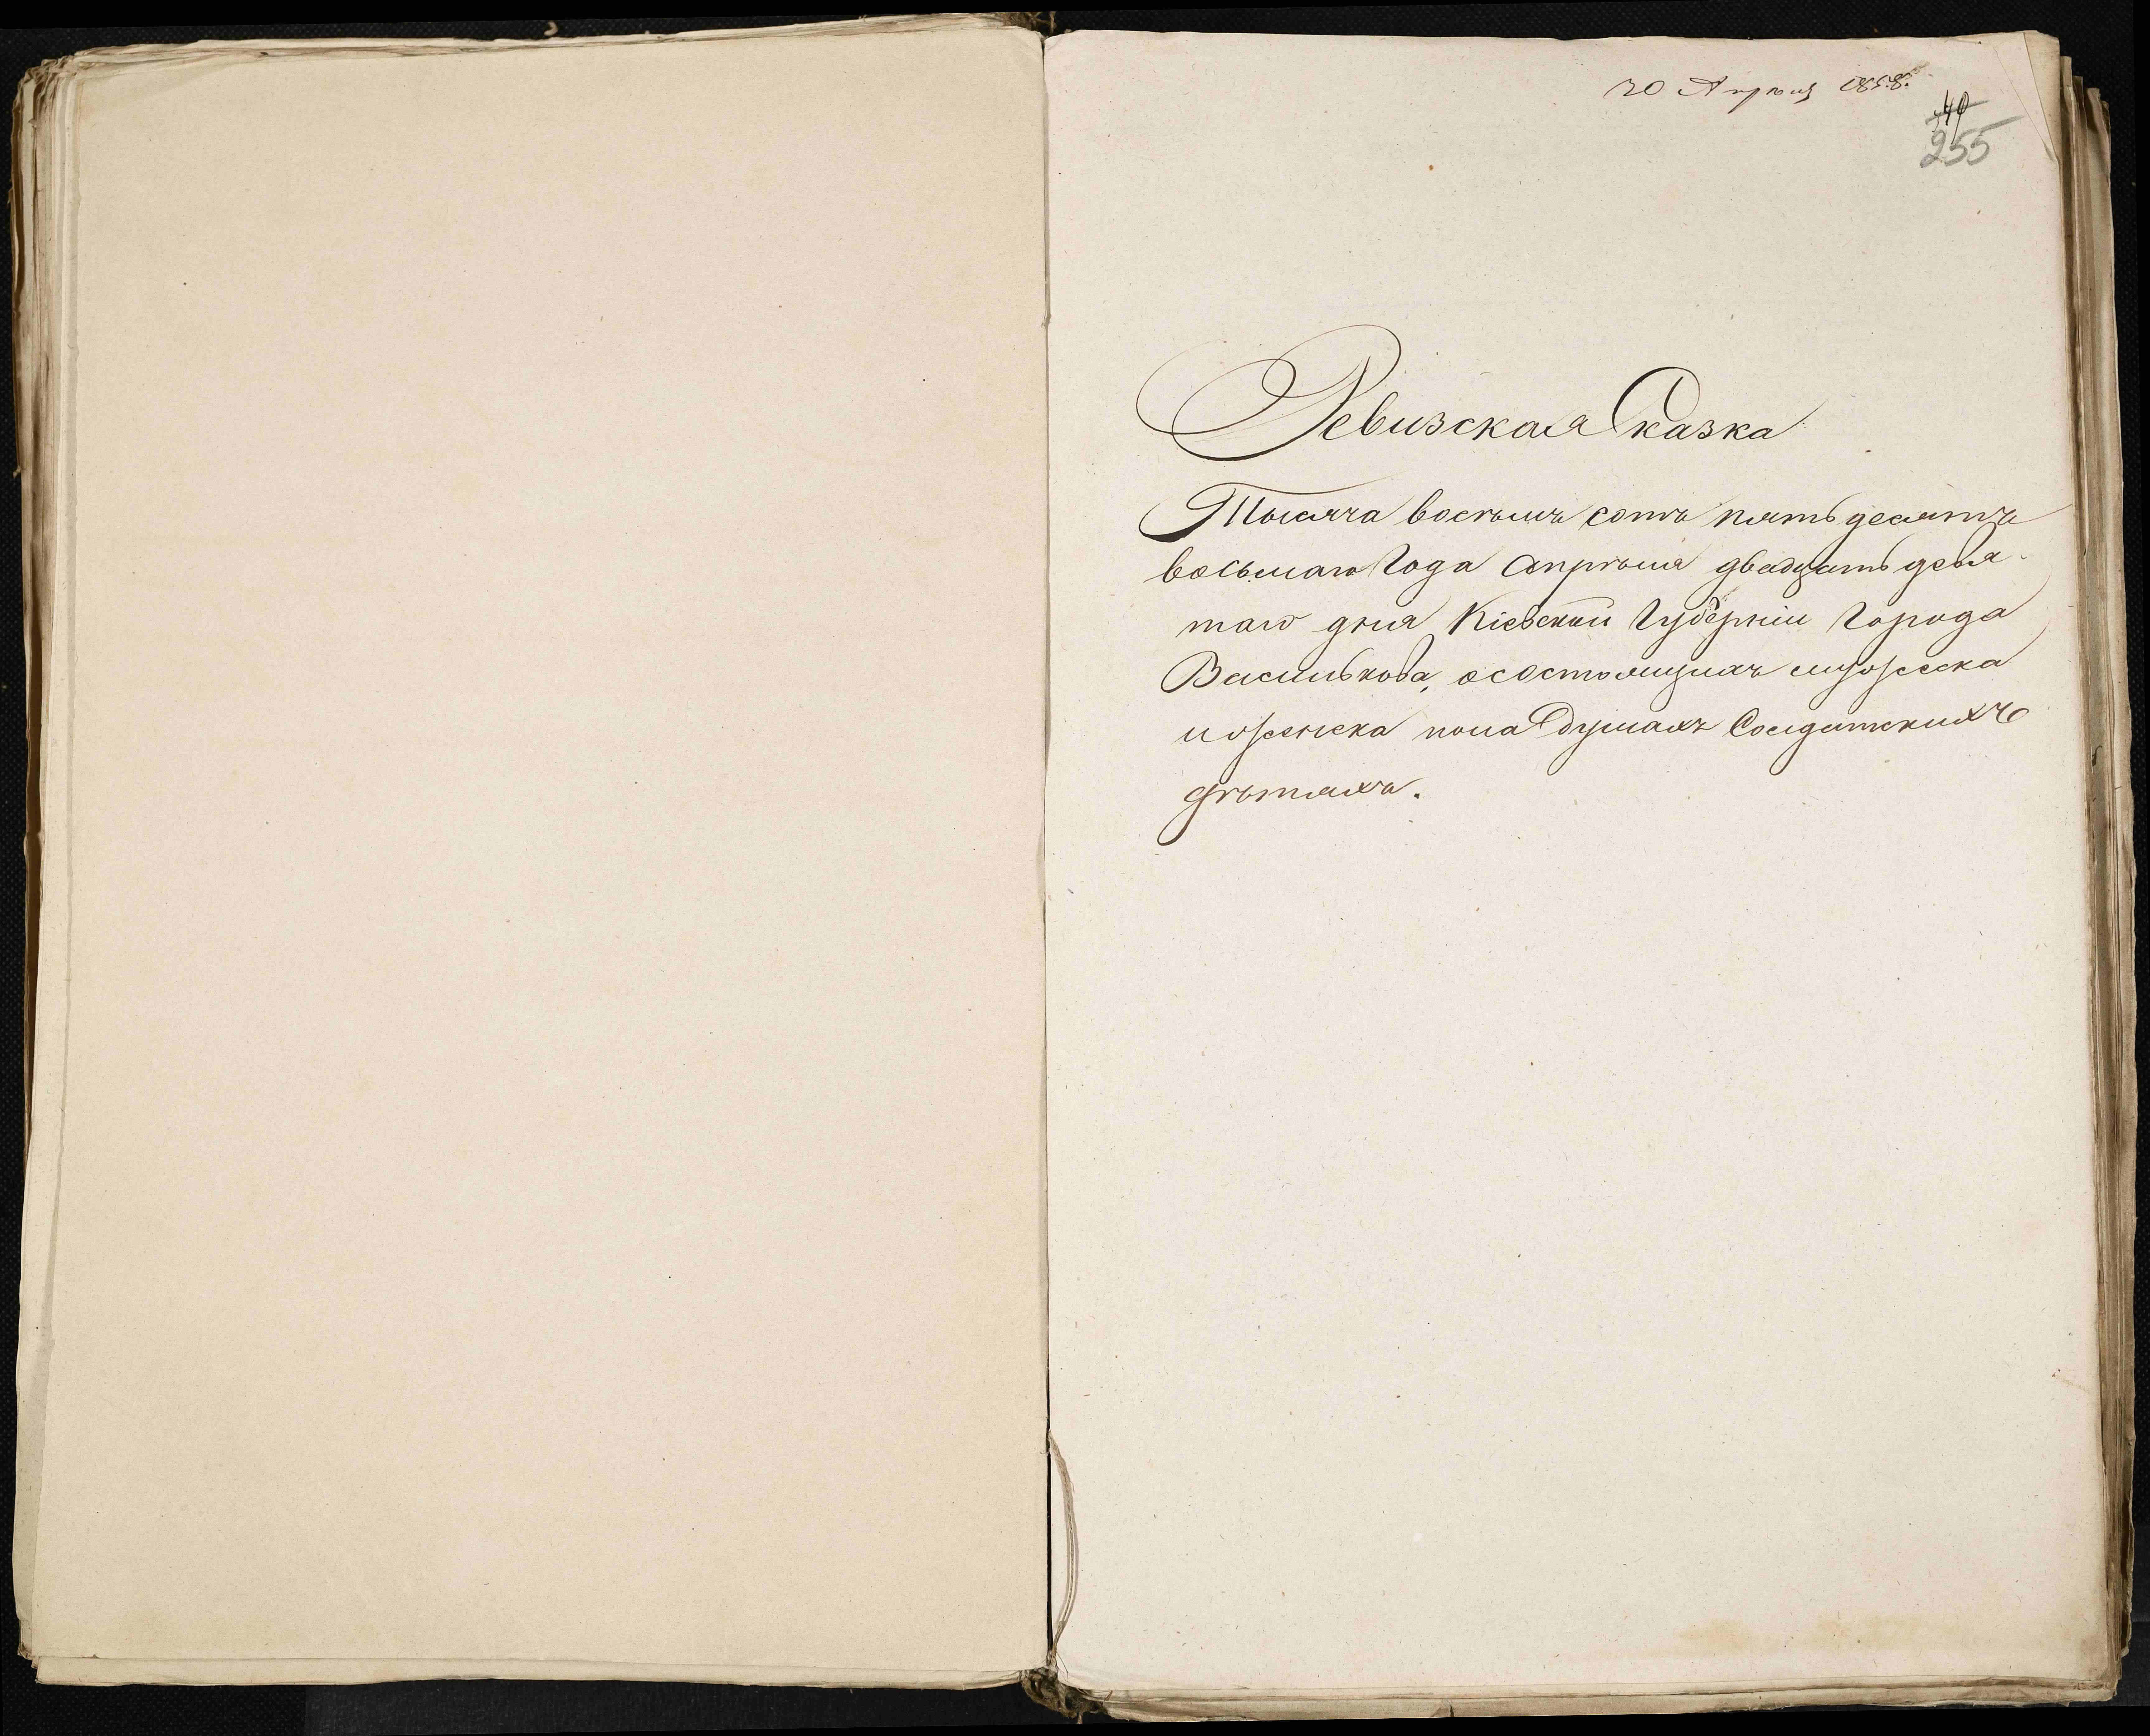 20 Апрѣля 1858.
255
Ревизская Сказка
Тысяча восѣмъ сотъ пятьдесятъ
восьмаго Года Апрѣля двадцать девя-
таго дня Кіевской Губерніи Города
Василькова, осостоящихъ мужеска
иженска пола душахъ Солдатскихъ
дѣтяхъ.